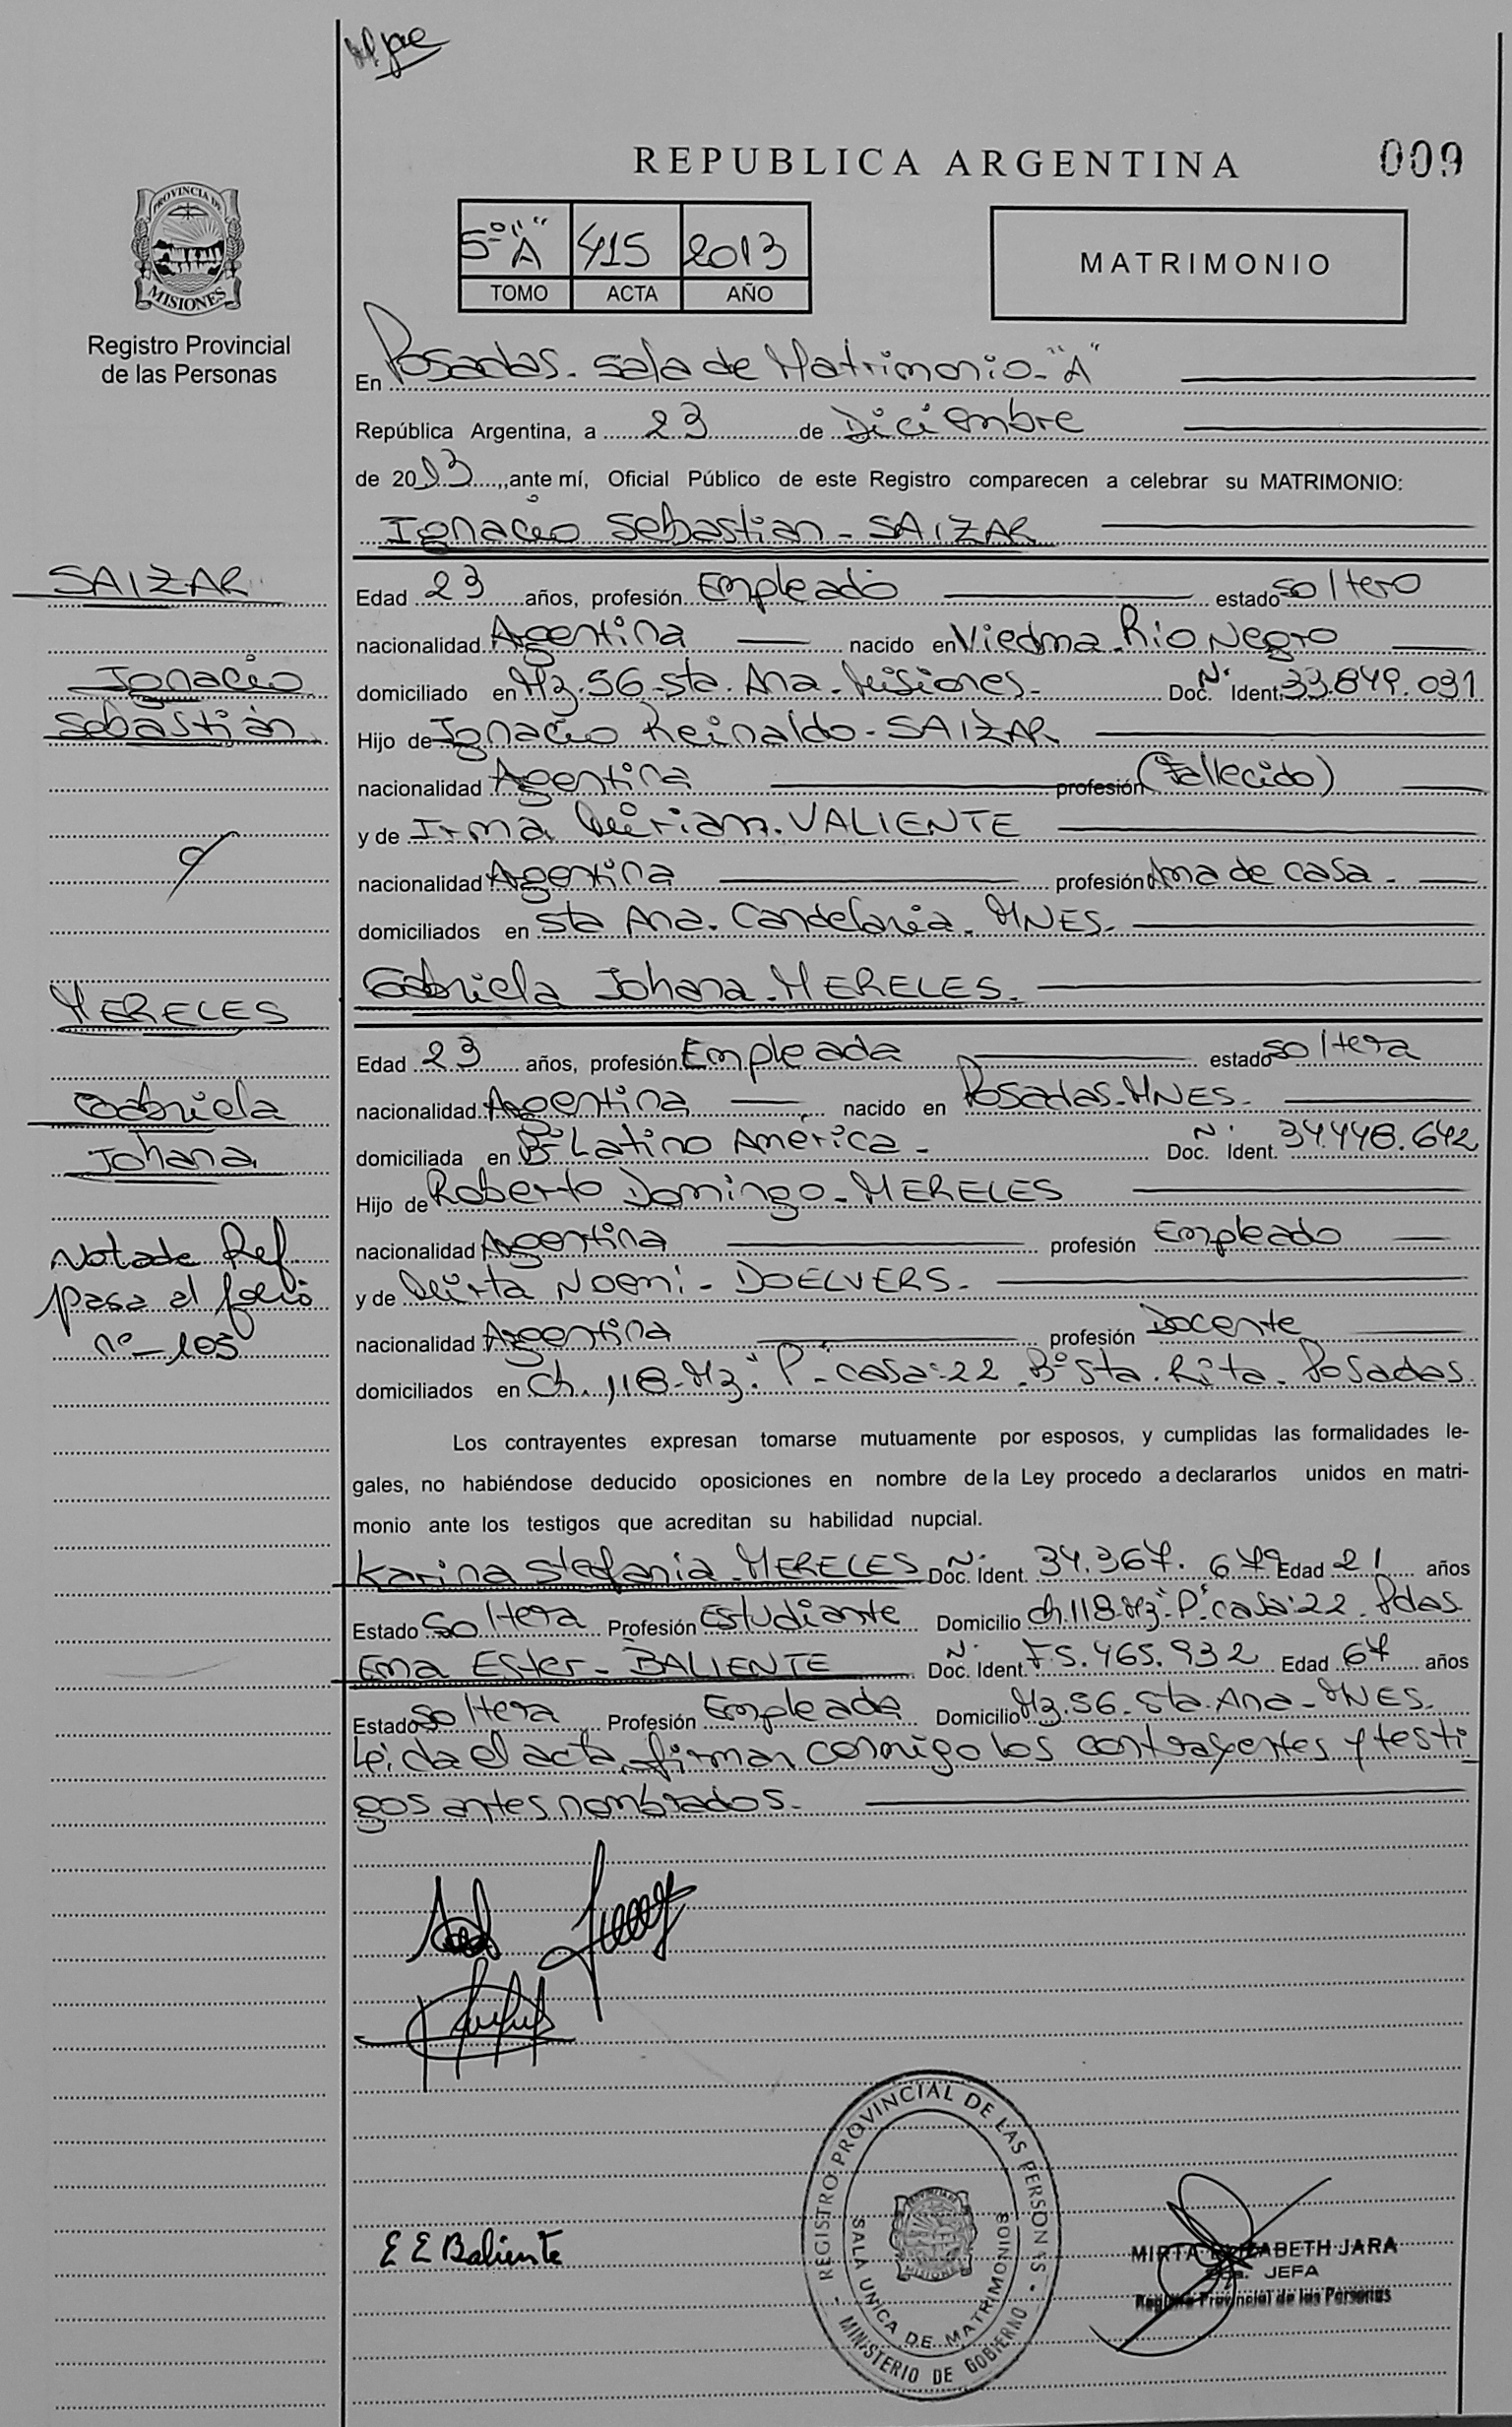 REPUBLICA ARGENTINA
009
PROVINCIA DE
MISIONES
Registro Provincial
de las Personas
5º "A" 415 2013
TOMO ACTA AÑO
MATRIMONIO
En Posadas - Sala de Matrimonio - "A"
República Argentina, a 23 de Diciembre
de 2013, ante mí, Oficial Público de este Registro comparecen a celebrar su MATRIMONIO:
Ignacio Sebastian - SAIZAR
SAIZAR
Ignacio
Sebastián
Edad 23 años, profesión Empleado estado soltero
nacionalidad Argentina nacido en Viedma - Rio Negro
domiciliado en Mz. 56 - Sta. Ana - Misiones - Doc. Nº Ident. 33.849.031
Hijo de Ignacio Reinaldo - SAIZAR
nacionalidad Argentina profesión (Fallecido)
y de Irma Mirian - VALIENTE
nacionalidad Argentina profesión Ama de casa -
domiciliados en Sta Ana - Candelaria - MNES -
Gabriela Johana - MERELES -
MERELES
Gabriela
Johana
Edad 23 años, profesión Empleada estado soltera
nacionalidad Argentina nacido en Posadas - MNES -
domiciliada en Bº Latino América - Doc. Nº Ident. 34.448.642
Hijo de Roberto Domingo - MERELES
nacionalidad Argentina profesión Empleado
y de Mirta Noemi - DOELVERS -
nacionalidad Argentina profesión Docente
domiciliados en Ch. 118 - Mz. "P" - casa: 22 - Bº Sta. Rita - Posadas
Nota de Ref
pasa al folio
nº - 105
Los contrayentes expresan tomarse mutuamente por esposos, y cumplidas las formalidades le-
gales, no habiéndose deducido oposiciones en nombre de la Ley procedo a declararlos unidos en matri-
monio ante los testigos que acreditan su habilidad nupcial.
Karina Stefania - MERELES Doc. Nº Ident. 34.367.679 Edad 21 años
Estado Soltera Profesión Estudiante Domicilio Ch. 118 - Mz. "P" - casa: 22 - Pdas
Ema Ester - BALIENTE Doc. Nº Ident. F5.465.932 Edad 67 años
Estado Soltera Profesión Empleada Domicilio Mz. 56 - Sta. Ana - MNES -
Leida el acta, firman conmigo los contrayentes y testi-
gos antes nombrados -
E E Baliente
REGISTRO PROVINCIAL DE LAS PERSONAS - MINISTERIO DE GOBIERNO -
SALA UNICA DE MATRIMONIOS
MISIONES
MIRTA ELIZABETH JARA
JEFA
Registro Provincial de las Personas